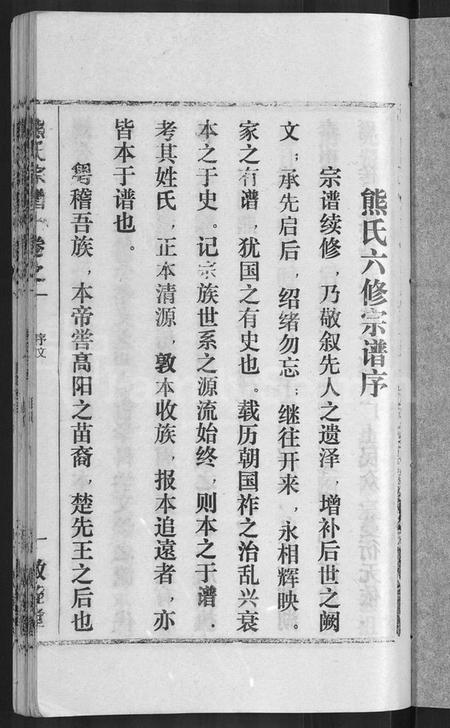 熊氏六修宗谱序
宗谱续修，乃敬叙先人之遗泽，增补后世之阙
文；承先启后，绍绪勿忘；继往开来，永相辉映。
家之有谱，犹国之有史也。载历朝国祚之治乱兴衰
本之于史。记宗族世系之源流始终，则本之于谱．
考其姓氏，正本清源，敦本收族，报本追遠者，亦
皆本于谱也。
粤稽吾族，本帝喾高阳之苗裔，楚先王之后也
熊氏宗谱 卷之一
序文
一